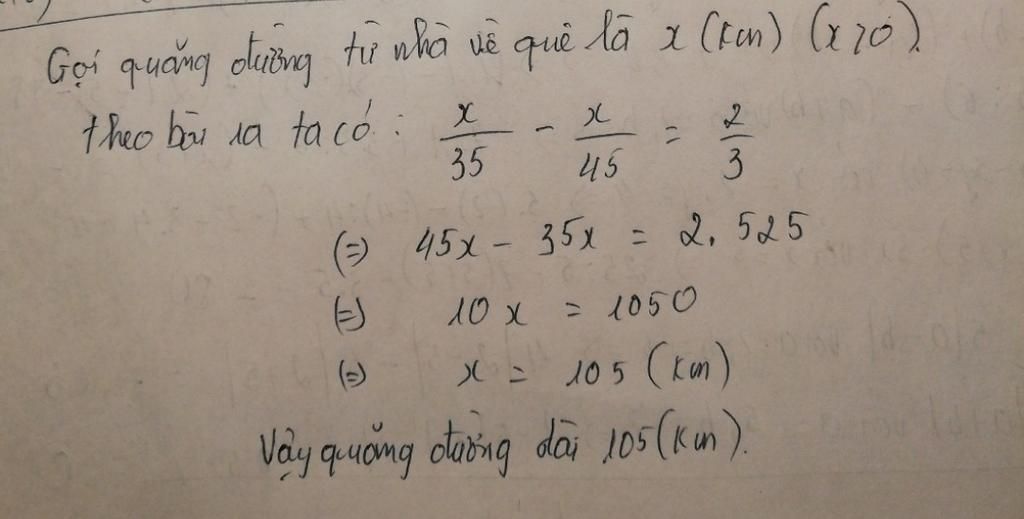 Gọi quãng đường từ nhà về quê là x (km) (x>0).
theo bài ra ta có: x/35 - x/45 = 2/3
(=) 45x - 35x = 2. 525
(=) 10x = 1050
(=) x = 105 (km)
Vậy quãng đường dài 105 (km).